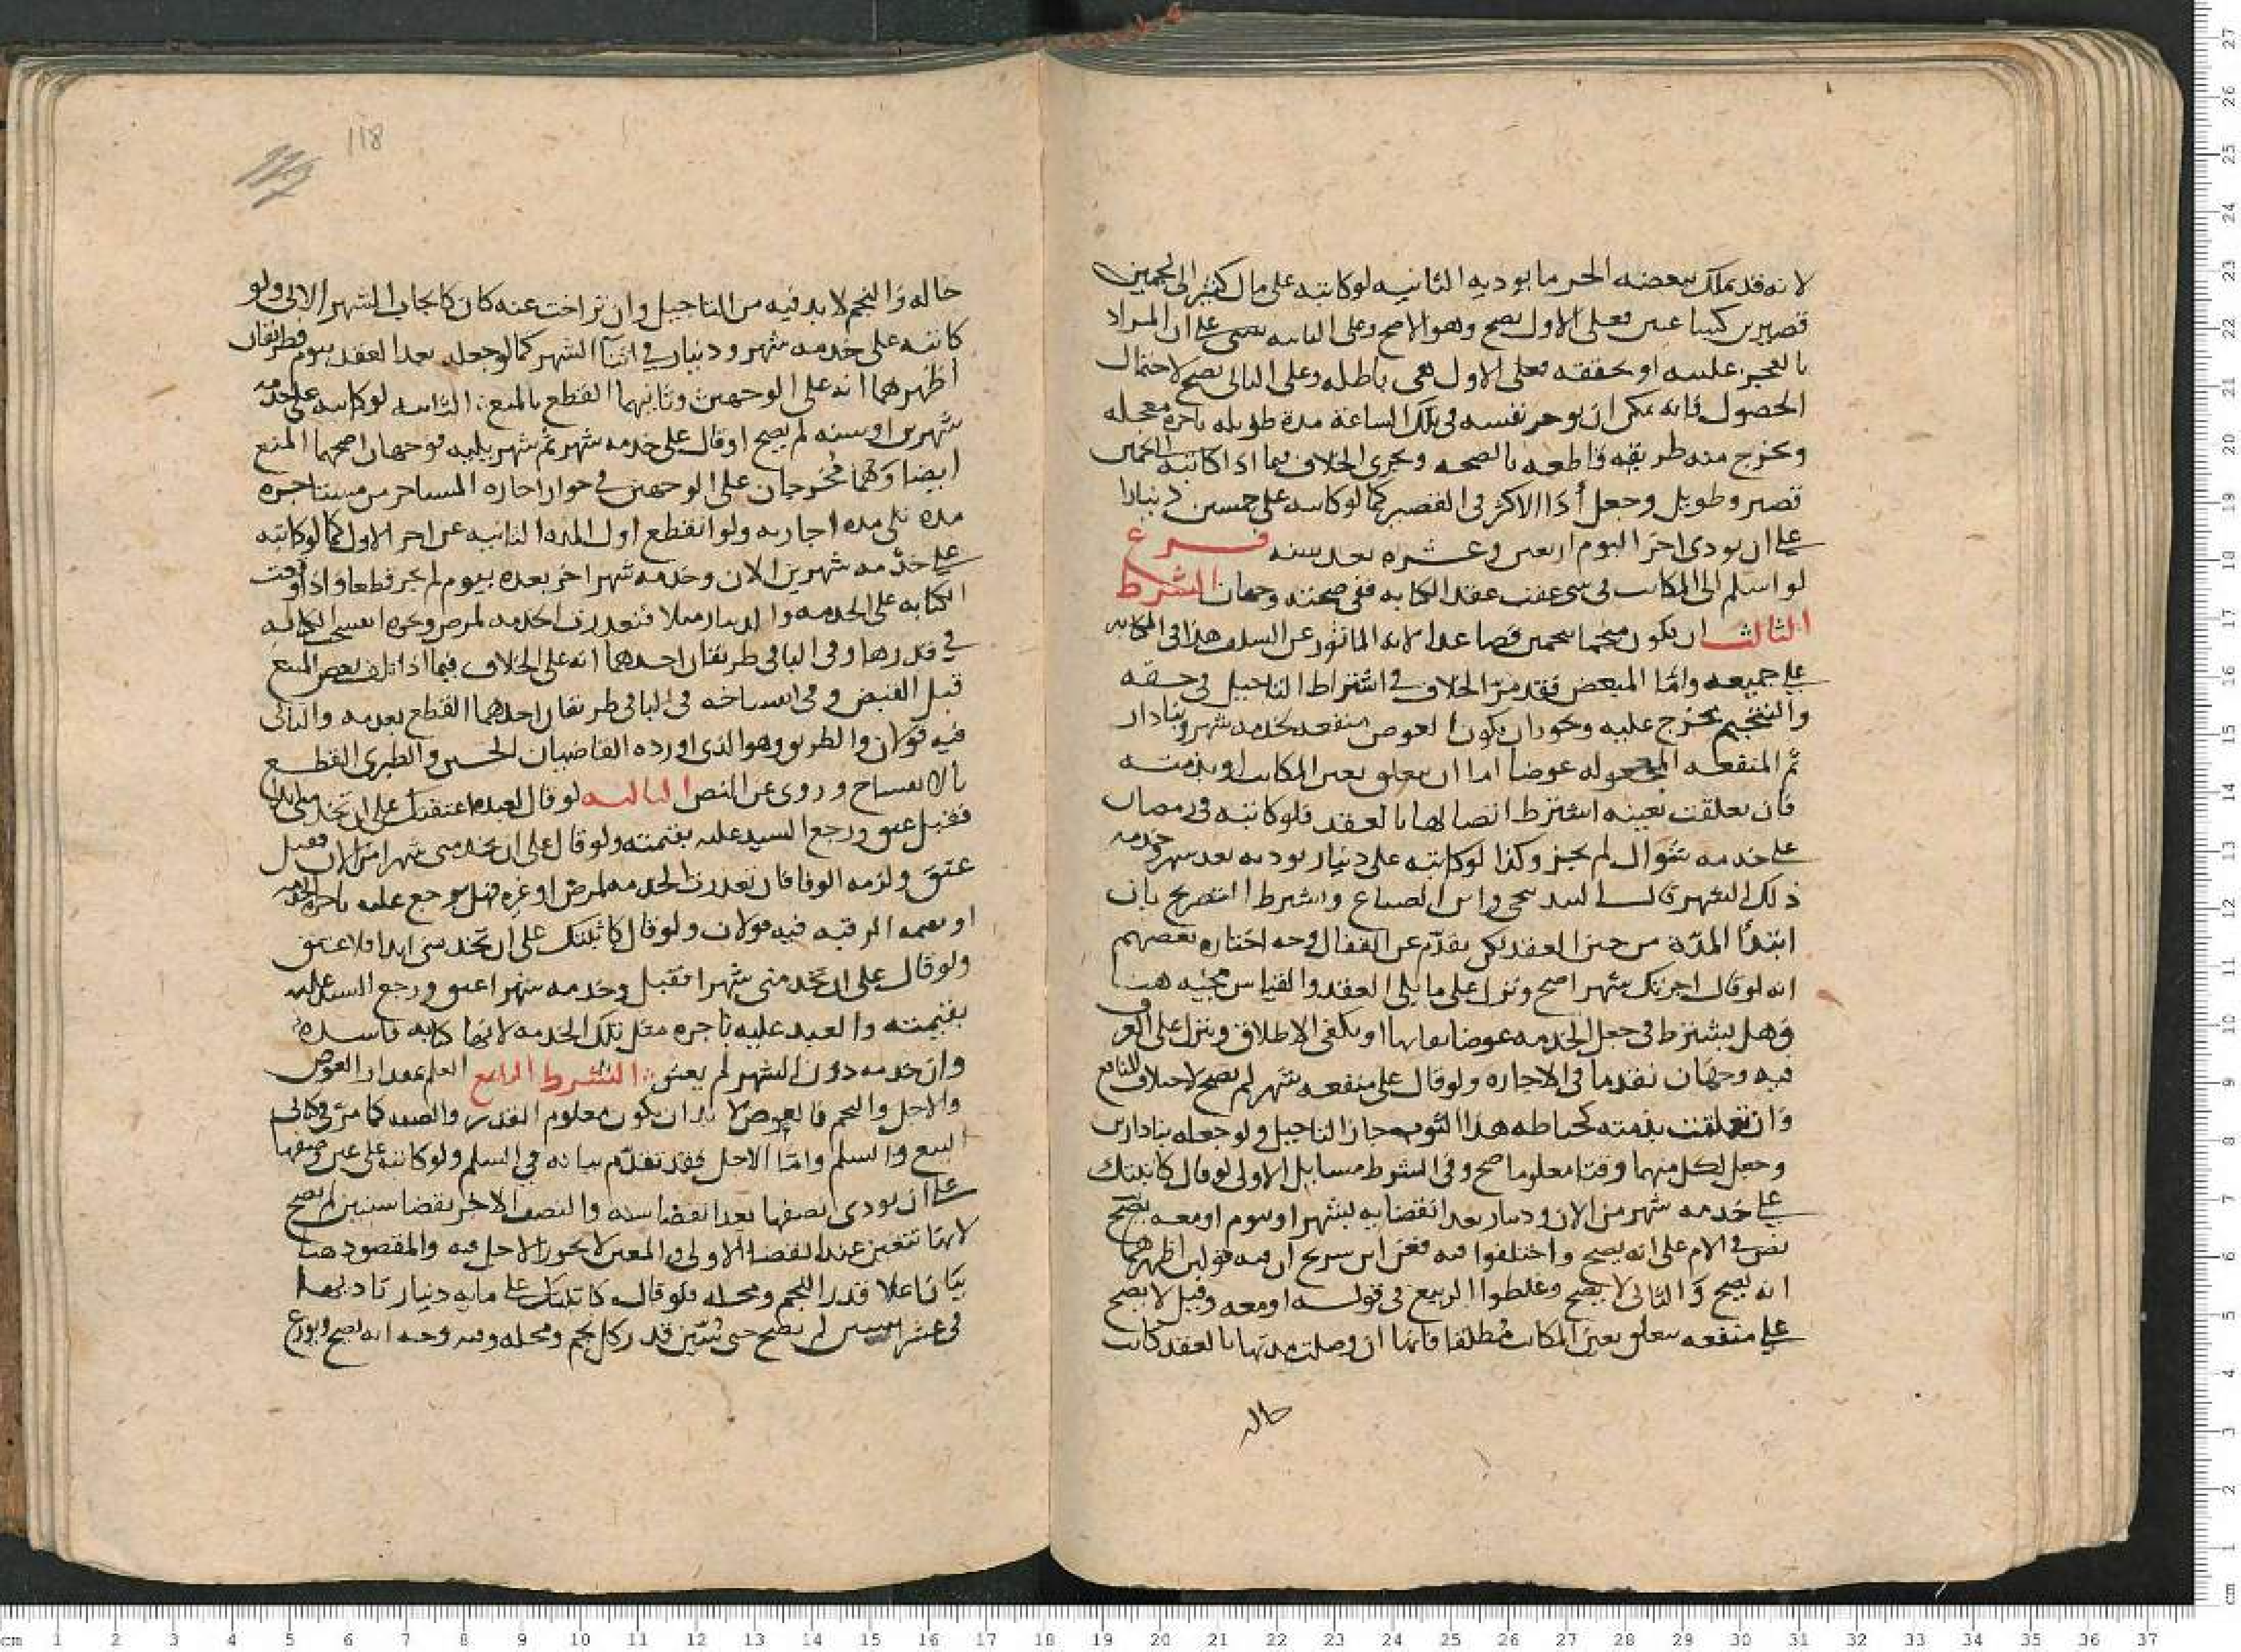 لانه قد يملك ببعضه الحر ما يوديه الثانيه لو كاتبه على مال كثير الى نجمين
قصيرين فعلى الاول يصح وهو الاصح وعلى الثانيه على ان المراد
بالعجز او تحققه فعلى الاول هي باطله وعلى الثاني يصح لاحتمال
الحصول فانه يمكن ان يوجر نفسه في تلك الساعة مدة طويله باجرة معجله
ويخرج منه طريقه قاطعه بالصحه ويجرى الخلاف فيما اذا كاتبه الى نجمين
قصير وطويل وجعل أداالاكثر في القصير كما لو كاتبه على خمسين دينارا
على ان يودى اخر اليوم اربعين وعشره بعد سنه فرع
لو اسلم الى المكاتب في شى عقب عقد الكتابه ففي صحته وجهان الشرط
الثالث ان يكون منجما نجمين فصاعدا لانه الماثور عن السلف هذا في المكاتب
على جميعه وامّا المبعض فقد مرّ الخلاف في اشتراط التاجيل في حقه
والتنجيم يخرج عليه ويجوز ان يكون العوض منفعه كخدمه شهر وبنا دار
ثم المنفعه المجعوله عوضا اما ان يتعلق بعين المكاتب او بذمته
فان تعلقت بعينه اشترط اتصالها بالعقد فلو كاتبه في رمضان
على خدمه شوال لم يجز وكذا لو كاتبه على دينار يوديه بعد شهر وخدمه
ذلك الشهر قال البندنيجي وابن الصباغ ويشترط التصريح بان
ابتدأ المدّة من حين العقد لكن تقدّم عن القفال وجه اختاره بعضهم
انه لو قال اجرتك شهرا صح ونزل على ما يلي العقد والقياس مجيئه هنا
وهل يشترط في جعل الخدمه عوضا بيانها او يكفى الاطلاق وينزل على العرف
فيه وجهان تقدما في الاجاره ولو قال على منفعه شهر لم يصح لاختلاف المنافع
وان تعلقت بذمته كخياطه هذا الثوب جاز التاجيل ولو جعله بنا دارين
وجعل لكل منهما وقتا معلوما صح وفي الشرط مسايل الاولى لو قال كاتبتك
على خدمه شهر من الان ودينار بعد انقضايه بشهر او يوم او معه يصح
نص في الام على انه يصح واختلفوا فيه فعن ابن سريج ان فيه قولين اظهرهما
انه يصح والثاني لا يصح وغلطوا الربيع في قوله او معه وقيل لا يصح
على منفعه يتعلق بعين المكاتب مُطلقا فانها ان وصلت مدتها بالعقد كانت
حاله
118
حاله والنجم لا بد فيه من التاجيل وان تراخت عنه كان كايجار الشهر الاتي ولو
كاتبه على خدمه شهر ودينار في اثنآ الشهر كما لو جعله بعد العقد بيوم فطريقان
اظهرهما انه على الوجهين وثانيهما القطع بالمنع، الثانيه لو كاتبه على خدمه
شهرين او سنه لم يصح او قال على خدمه شهر ثم شهر يليه فوجهان اصحهما المنع
ايضا وَهُما مُخرجان على الوجهين في جواز اجاره المستاجر من مستاجره
مده تلي مده اجارته ولو انقطع اول المده الثانيه عن اخر الاول كما لو كاتبه
على خدمه شهرين الان وخدمه شهر اخر بعده بيوم لم يجز قطعا واذا وقعت
الكتابه على الخدمه والدينار مثلا فتعذرت الخدمه لمرض ونحوه انفسخ الكتابه
في قدرها وفي الباقي طريقان احدهما انه على الخلاف فيما اذا تلف بعض المبيع
قبل القبض وفي انفساخه في الباقي طريقان احدهما القطع بعدمه والثاني
فيه قولان والطريق وهو الذي اورده القاضيان الحسين والطبري القطع
بالانفساخ وروى عن النص الثالثه لو قال لعبده اعتقتك على ان تخدمني ابدا
فقبل عتق ورجع السيد عليه بقيمته ولو قال على ان تخدمني شهرا من الان فقبل
عتق ولزمه الوفا فان تعذرت الخدمه لمرض او غره فهل يرجع عليه باجره الخدمه
او بقيمه الرقبه فيه قولان ولو قال كاتبتك على ان تخدمني ابدا فلا عتق
ولو قال على ان تخدمني شهرا فقبل وخدمه شهرا عتق ورجع السيد عليه
بقيمته والعبد عليه باجره مثل تلك الخدمه لانها كتابه فاسده
وان خدمه دون الشهر لم يعتق الشرط الرابع العلم بمقدار العوض
والاجل والنجم فالعوض لا بد ان يكون معلوم القدر والصفه كما مرّ في كتابي
البيع والسلم وامّا الاجل فقد تقدّم بيانه في السلم ولو كاتبه على عين وصفها
على ان يودى نصفها بعد انقضا سنه والنصف الاخر بقضا سنتين لم يصح
لانها تتعين عند انقضا الاولى والمعين لا يجوز الاجل فيه والمقصود هنا
بيان قدر النجم ومحله فلو قال كاتبتك على مايه دينار تاديها
في عشر سنين لم يصح حتى يُبيّن قدر كل نجم ومحله وفيه وجه انه يصح ويوزع